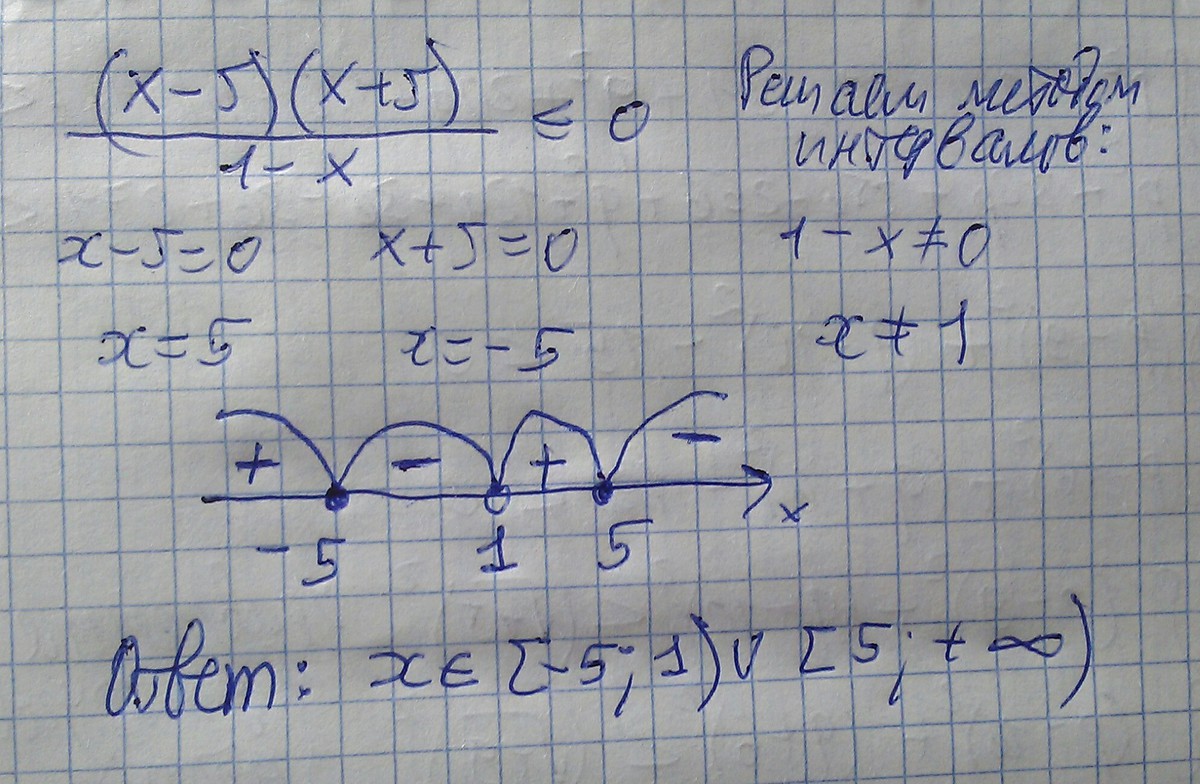 (x-5)(x+5)
1-x
≤ 0
Решаем методом
интервалов:
x-5=0 x+5=0 1-x≠0
x=5 x=-5 x≠1
+ - + -
-5 1 5 x
Ответ: x∈[-5;1)∪[5;+∞)